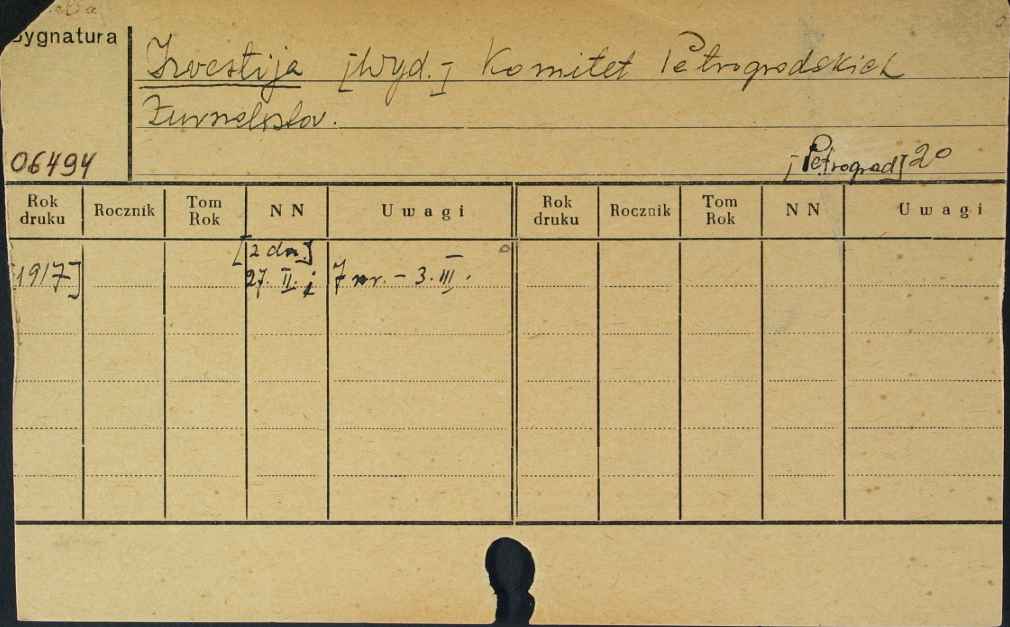 Sygnatura
Izvestija [Wyd.] Komitet Petrogrodskich
Žurnalistov.
06494
[Petrograd] 2°
Rok druku Rocznik Tom Rok NN Uwagi Rok druku Rocznik Tom Rok NN Uwagi
[2 dn.]
[1917] 27. II. i 7 nr. – 3. III.